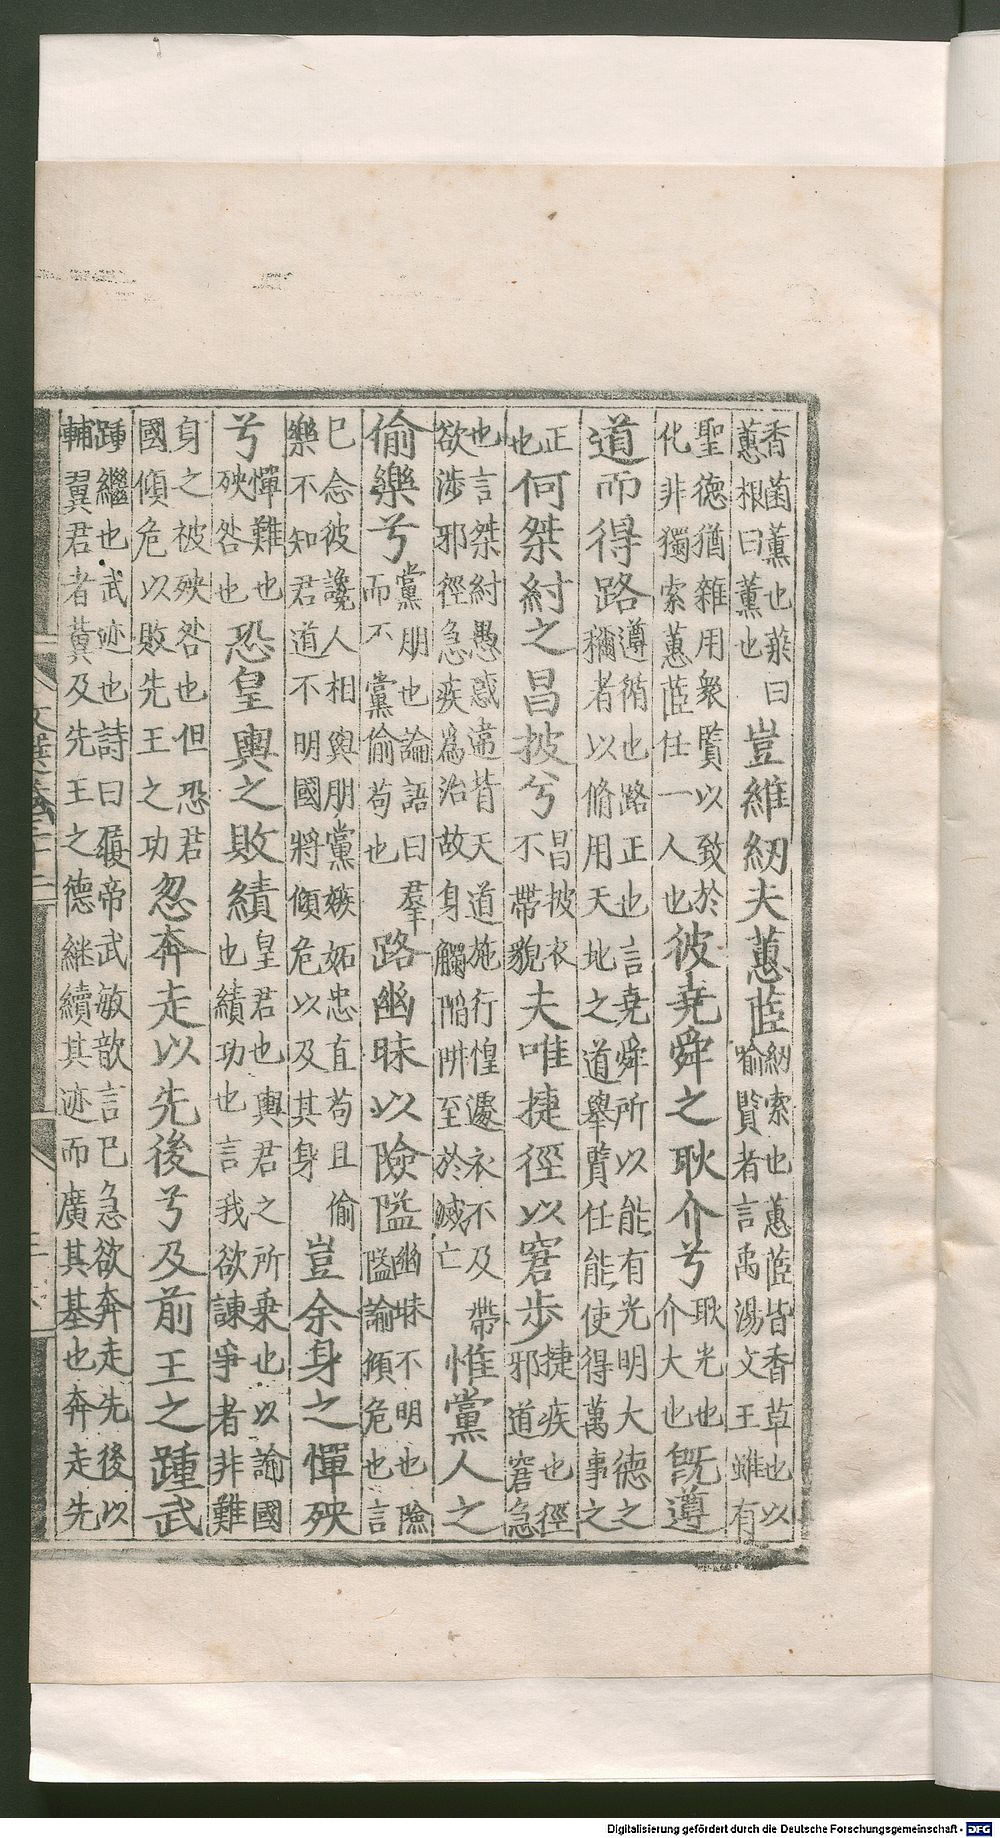 香菌薰也葉曰蕙根曰薰也豈維紉夫蕙茝紉索也蕙茝皆香草也以喻賢者言禹湯文王雖有
聖德猶雜用衆賢以致於化非獨索蕙茝任一人也彼堯舜之耿介兮耿光也介大也旣遵
道而得路遵循也路正也言堯舜所以能有光明大德之稱者以脩用天地之道舉賢任能使得萬事之
正也何桀紂之昌披兮昌披衣不帶貌夫唯捷徑以窘步捷疾也徑邪道窘急
也言桀紂愚惑違背天道施行惶遽衣不及帶欲涉邪徑急疾為治故身觸陷阱至於滅亡惟黨人之
偷樂兮黨朋也論語曰羣而不黨偷苟也路幽昧以險隘幽昧不明也險隘諭傾危也言
已念彼讒人相與朋黨嫉妬忠直苟且偷樂不知君道不明國將傾危以及其身豈余身之憚殃
兮憚難也殃咎也恐皇輿之敗績皇君也輿君之所乗也以諭國也績功也言我欲諫爭者非難
身之被殃咎也但恐君國傾危以敗先王之功忽奔走以先後兮及前王之踵武
踵繼也武迹也詩曰履帝武敏歆言已急欲奔走先後以輔翼君者冀及先王之德継續其迹而廣其基也奔走先
Digitalisierung gefördert durch die Deutsche Forschungsgemeinschaft - DFG